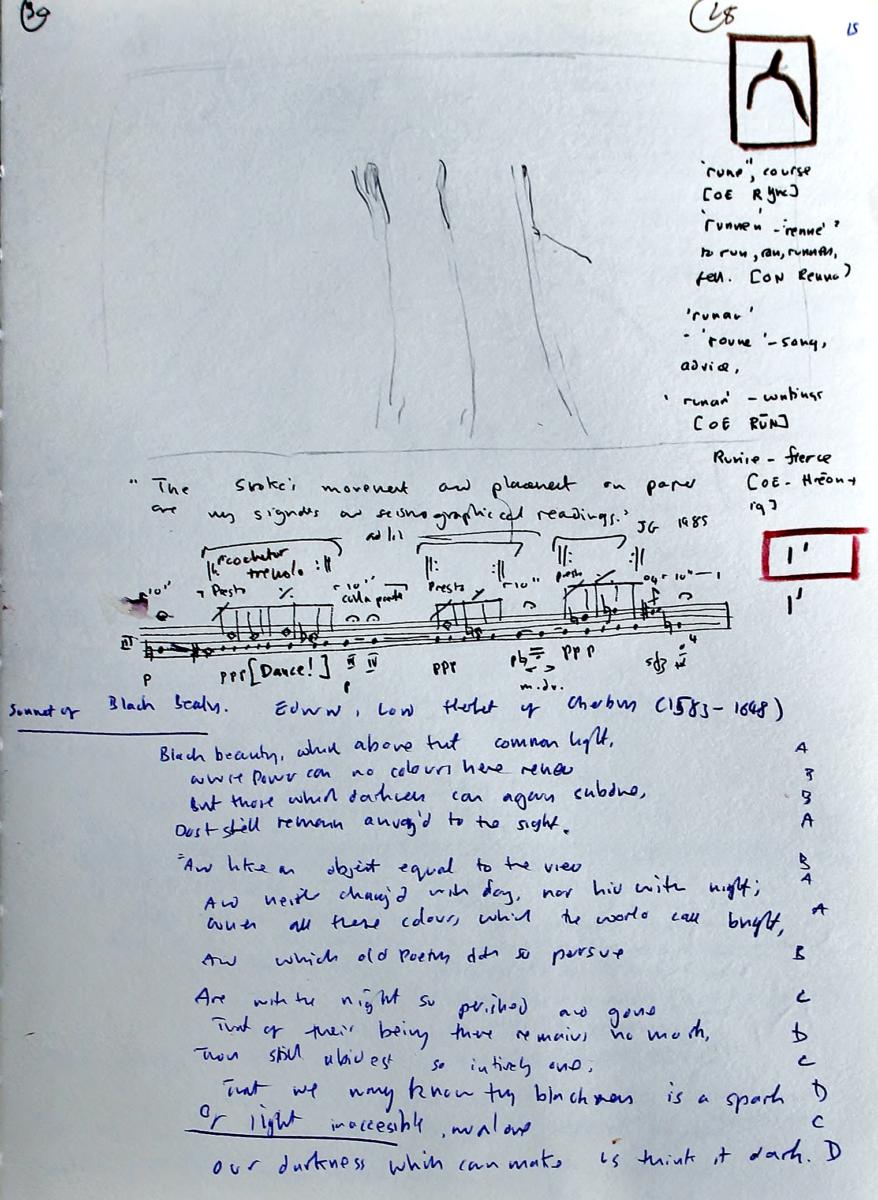 28
15
'rune', course
[OE Ryne]
'runnen' - 'renne'
to run, ran, runnen,
fell. [ON Renna]
'runan'
- 'roune' - song,
advice,
'runan' - writings
[OE RŪN]
Runire - fierce
[OE - Hrēon +
ig]
" The Stroke's movement and placement on paper
are my signs and seismographical readings."
JG 1985
ad lib
tremolo
1'
1'
10"
Presto
10"
Presto
10"
Presto
10"
P
PPP [Dance!]
III IV
P
PPP
PPP
sfz
Sonnet of Black Beauty. Edward, Lord Herbert of Cherbury (1583-1648)
Black beauty, which above that common light, A
whose Power can no colours here renew B
But those which darkness can again subdue, B
Dost still remain unvary'd to the sight. A
And like an object equal to the view B
And neither chang'd with day, nor hid with night; A
When all these colours, which the world call bright, A
And which old Poetry doth so persue B
Are with the night so perished and gone C
That of their being there remains no mark, D
Thou still abidest so intirely one, C
That we may know thy blackness is a spark D
Of light inaccesible, and alone C
Our darkness which can make us think it dark. D